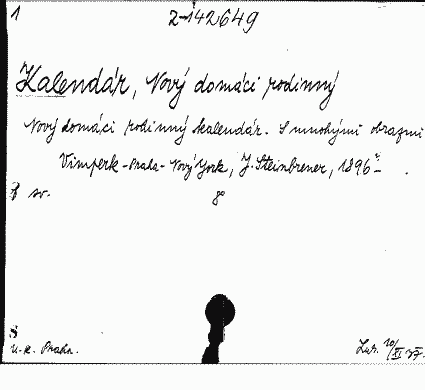 1 2-142649
Kalendár, Nový domáci rodinný
Nový domáci rodinný kalendár. S mnohými obrazmi
Vimperk - Praha - Nový York, J. Steinbrener, 1896 - .
sv. 8°
S
U.K. Praha. 10/XI